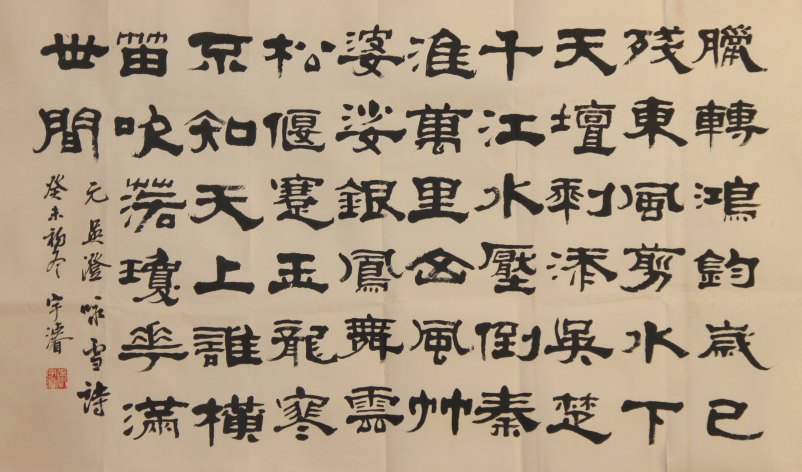 臘轉鴻鈞歲已
残東風剪水下
天壇剩添吳楚
千江水壓倒秦
淮萬里山風竹
婆娑銀鳳舞雲
松偃蹇玉龍寒
不知天上誰橫
笛吹落瓊華滿
世間
元吳澄咏雪詩
癸未初冬 宇濬